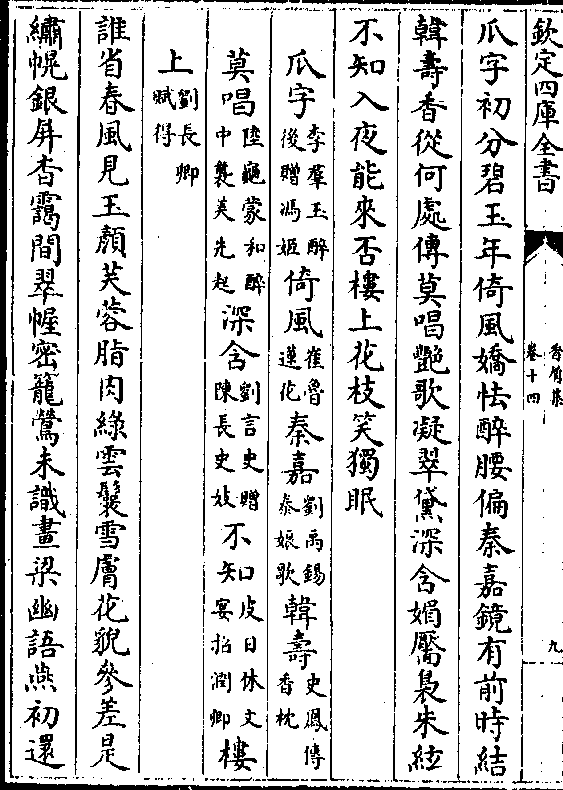 欽定四庫全書
香屑集
卷十四
九
瓜字初分碧玉年倚風嬌怯醉腰偏秦嘉鏡有前時結
韓壽香從何處傳莫唱艷歌凝翠黛深含媚靨裊朱絃
不知入夜能來否樓上花枝笑獨眠
瓜字李羣玉醉後贈馮姬倚風崔魯蓮花秦嘉劉禹錫泰娘歌韓壽史鳳傳香枕
莫唱陸龜蒙和醉中襲美先起深含劉言史贈陳長史妓不知皮日休文宴招潤卿樓
上劉長卿賦得
誰省春風見玉顏芙蓉脂肉綠雲鬟雪膚花貌參差是
繡幌銀屏杳靄間翠幄密籠鶯未識畫梁幽語燕初還